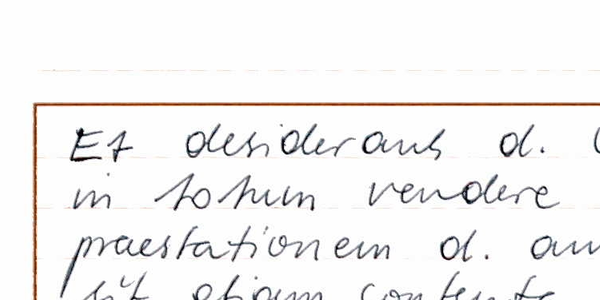 Et desiderans d.
in totum vendere
praestationem d.
sit etiam contenta